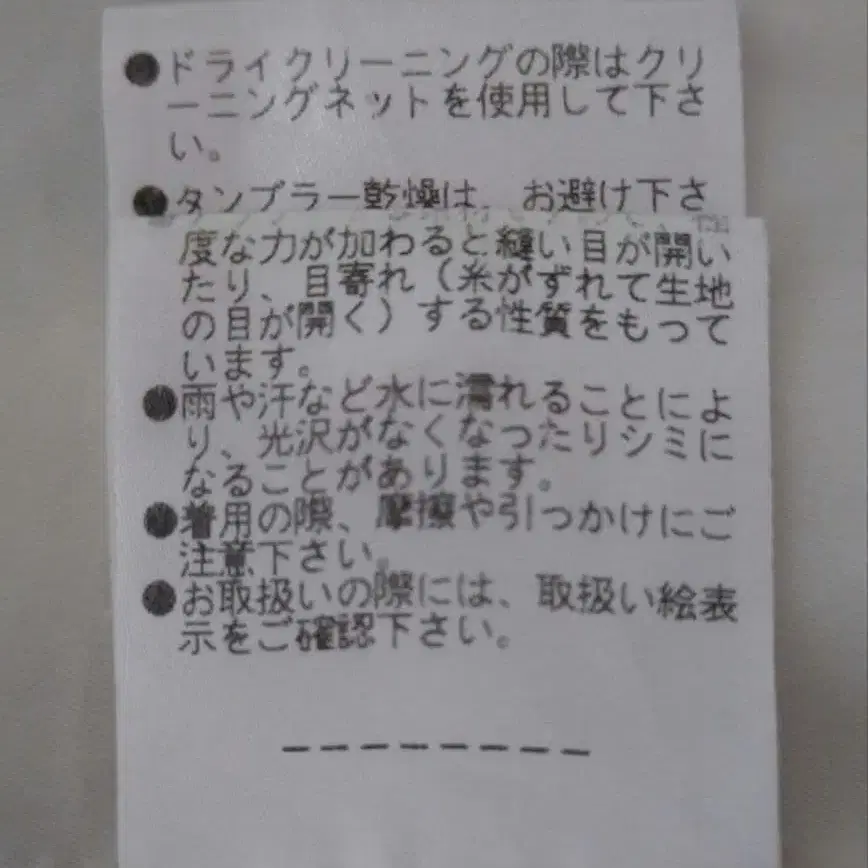 ●ドライクリーニングの際はクリ
ーニングネットを使用して下さ
い。
●タンブラー乾燥は、お避け下さ
度な力が加わると縫い目が開い
たり、目寄れ（糸がずれて生地
の目が開く）する性質をもって
います。
●雨や汗など水に濡れることによ
り、光沢がなくなったりシミに
なることがあります。
●着用の際、摩擦や引つかけにご
注意下さい。
●お取扱いの際には、取扱い絵表
示をご確認下さい。